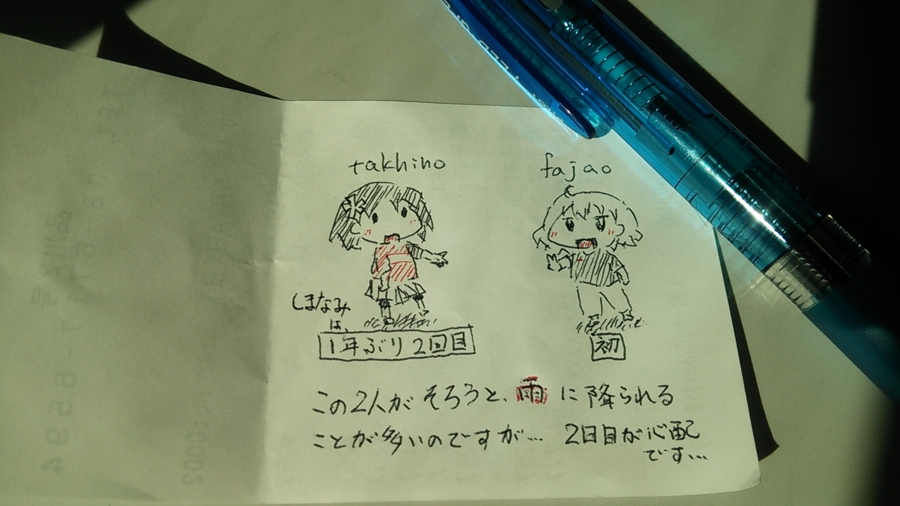 takhino
fajao
しまなみ
は、
1年ぶり2回目
初
この2人がそろうと、雨に降られる
ことが多いのですが… 2日目が心配
です…